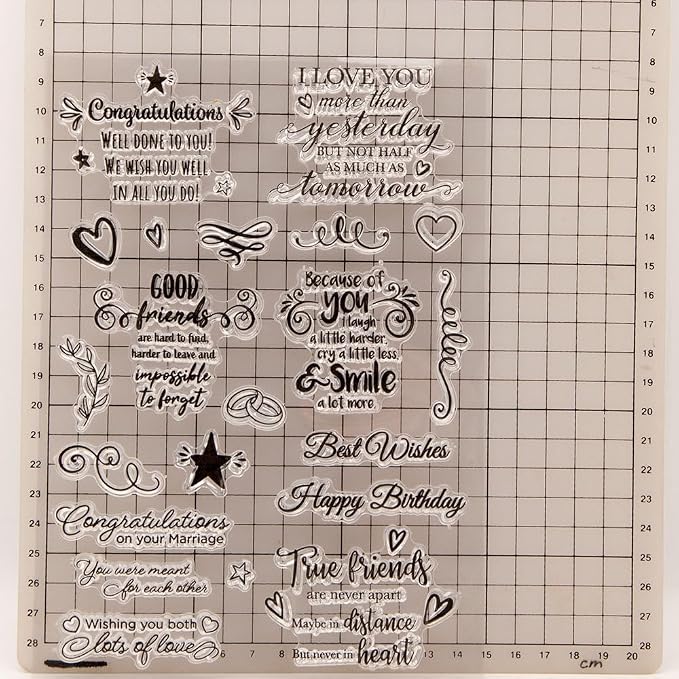 Congratulations
WELL DONE TO YOU!
WE WISH YOU WELL
IN ALL YOU DO!
I LOVE YOU
more than
yesterday
BUT NOT HALF
AS MUCH AS
tomorrow
GOOD
friends
are hard to find,
harder to leave and
impossible
to forget
Because of
YOU
i laugh
a little harder,
cry a little less,
& Smile
a lot more
Best Wishes
Happy Birthday
Congratulations
on your Marriage
You were meant
for each other
Wishing you both
lots of love
True friends
are never apart
Maybe in distance
But never in heart
6
7 7
8 8
9 9
10 10
11 11
12 12
13 13
14 14
15 15
16 16
17 17
18 18
19 19
20 20
21 21
22 22
23 23
24 24
25 25
26 26
27 27
28 6 7 8 9 10 11 12 13 14 15 16 17 18 19 20 28
cm